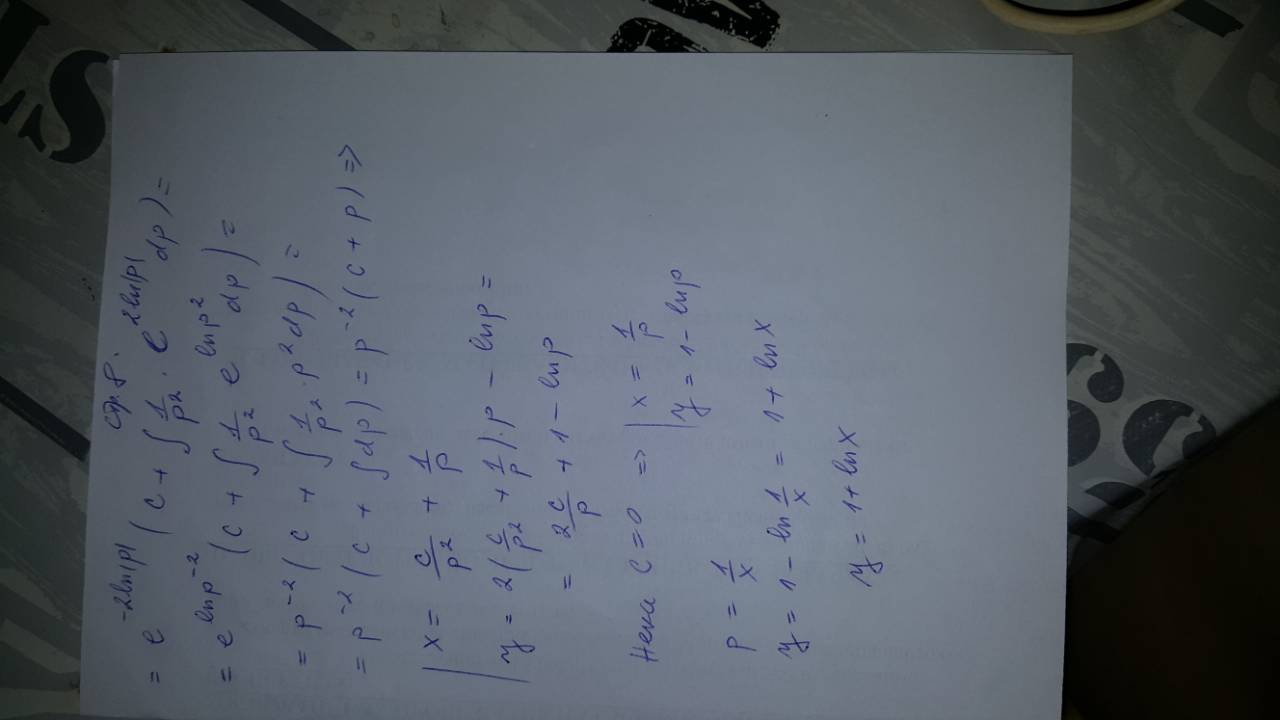 стр. 8.
= e^{-2ln|p|} (c + ∫ 1/p² · e^{2ln|p|} dp) =
= e^{lnp^{-2}} (c + ∫ 1/p² e^{lnp²} dp) =
= p^{-2} (c + ∫ 1/p² · p² dp) =
= p^{-2} (c + ∫dp) = p^{-2} (c + p) =>
| x = c/p² + 1/p
| y = 2(c/p² + 1/p).p - lnp =
= 2c/p + 1 - lnp
Нека c = 0 => | x = 1/p
| y = 1 - lnp
p = 1/x
y = 1 - ln 1/x = 1 + lnx
y = 1 + lnx